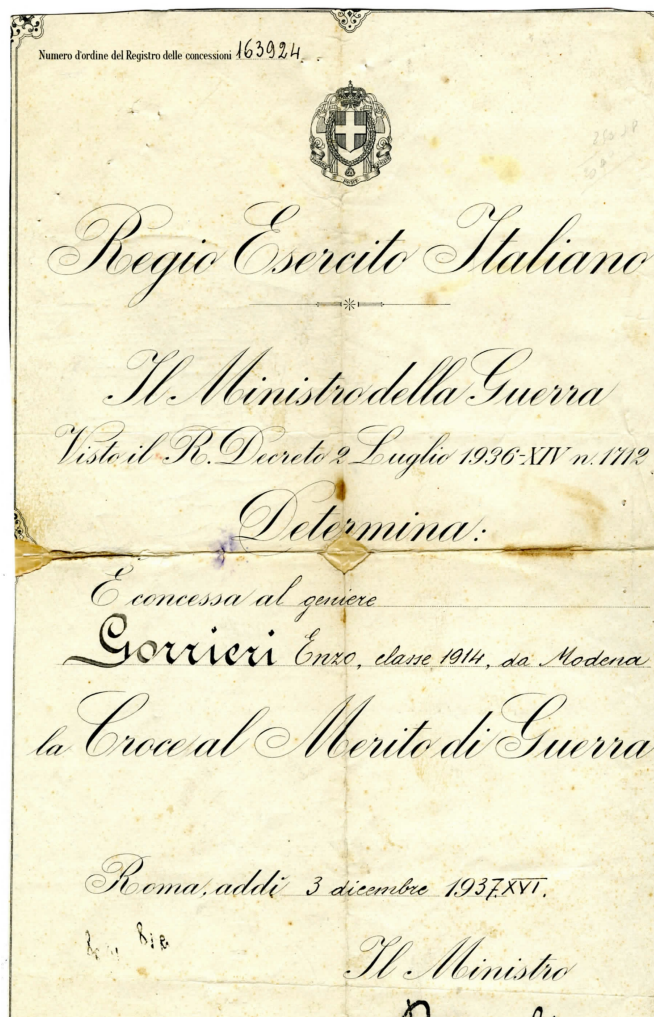 Numero d'ordine del Registro delle concessioni 163924
Regio Esercito Italiano
Il Ministro della Guerra
Visto il R. Decreto 2 Luglio 1936-XIV n. 1712
Determina:
È concessa al geniere
Gorrieri Enzo, classe 1914, da Modena
la Croce al Merito di Guerra
Roma, addì 3 dicembre 1937.XVI.
Il Ministro